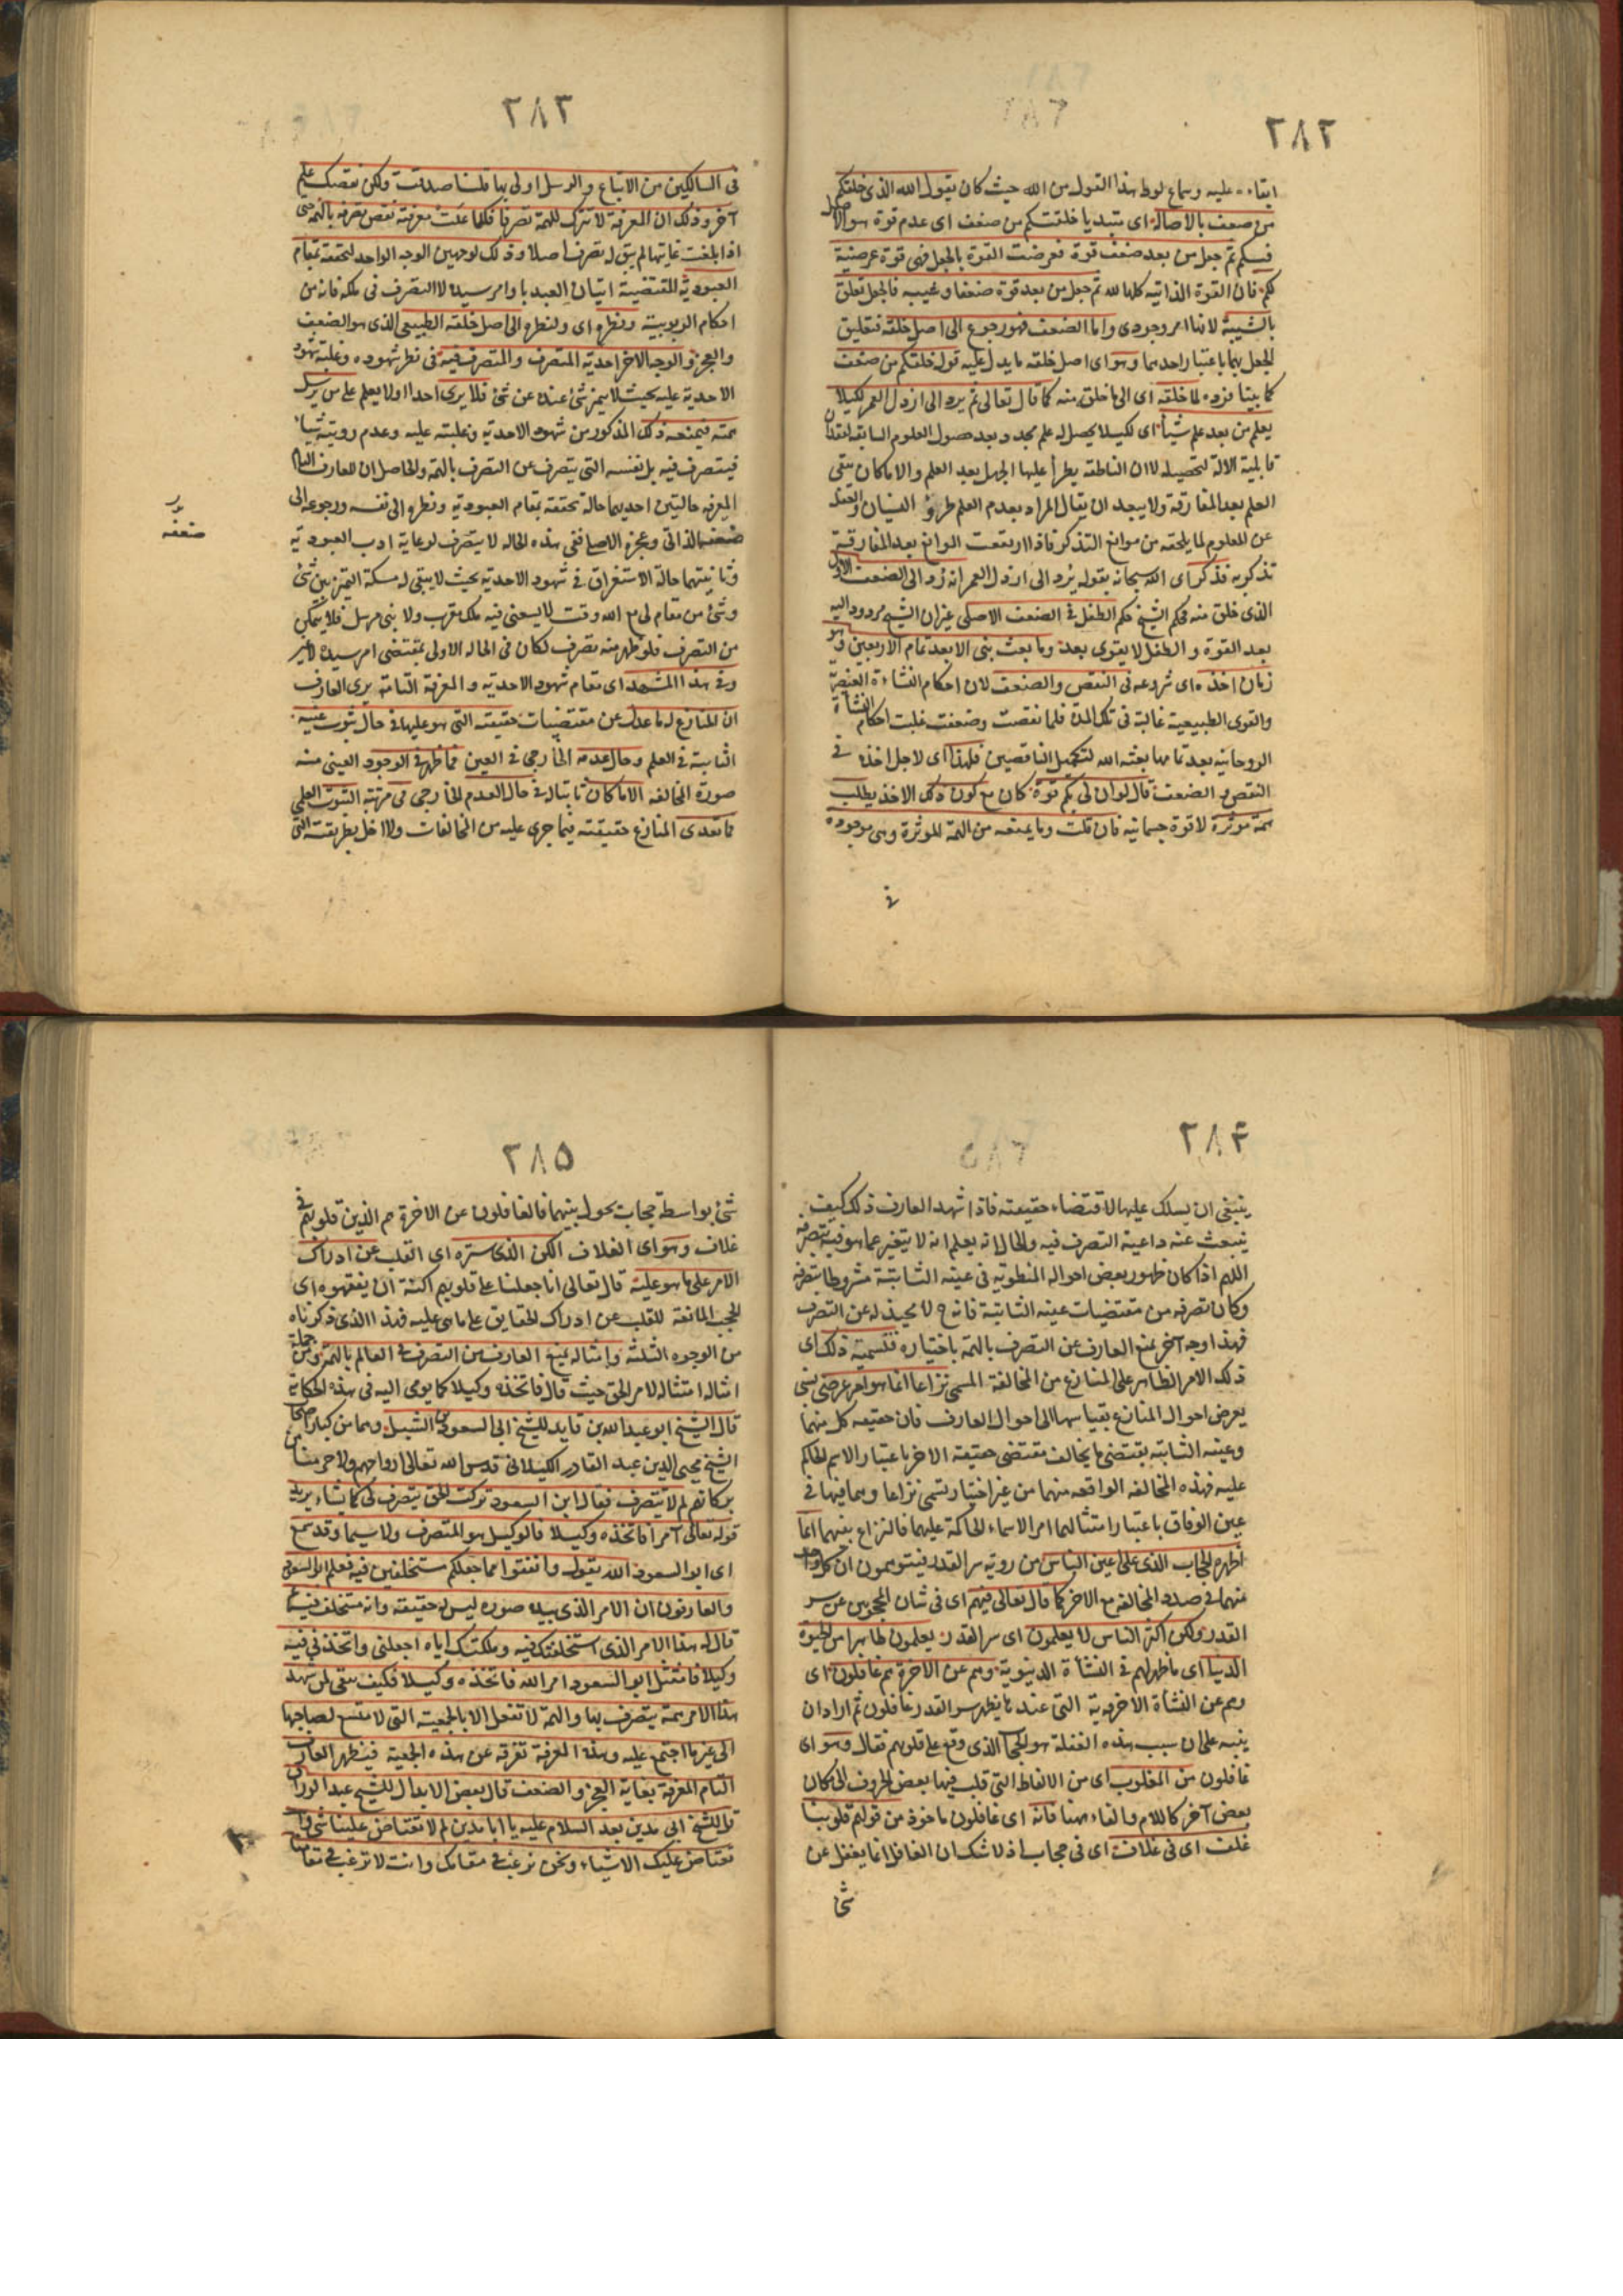 ٢٨٢
ابقاء عليه وسماع لوط هذا القول من الله حيث كان يقول الله الذى خلقكم
من ضعف بالاصالة اى مبتديا خلقتكم من ضعف اى عدم قوة هو الاصل
فيكم ثم جعل من بعد ضعف قوة فعرضت القوة بالجعل فهى قوة عرضية
لكم فان القوة الذاتية كلها لله ثم جعل من بعد قوة ضعفا وشيبه فالجعل تعلق
بالشيبة لانها امر وجودى واما الضعف فهو رجوع الى اصل خلقه فتعليق
الجعل بهما باعتبار احدهما وهو اى اصل خلقه ما يدل عليه قوله خلقكم من ضعف
كما بينا فرده لما خلقته اى الى ما خلق منه كما قال تعالى ثم يرد الى ارذل العمر لكيلا
يعلم من بعد علم شيأ اى لكيلا يحصل له علم مجدد بعد حصول العلوم السابقة لفقدان
قابلية الالة لتحصيله لا ان الناطقة يطرأ عليها الجهل بعد العلم والا ما كان يبقى
العلم بعد المفارقة ولا يبعد ان يقال المراد بعدم العلم طروّ النسيان والغفلة
عن المعلوم لما يلحقه من موانع التذكر فاذا ارتفعت الموانع بعد المفارقة
تذكر به فذكر اى الله سبحانه بقوله يرد الى ارذل العمر انه رد الى الضعف الاول
الذى خلق منه فحكم الشيخ حكم الطفل فى الضعف الاصلى غير ان الشيخ مردود اليه
بعد القوة والطفل لا يقوى بعد وما بعث نبى الا بعد تمام الاربعين وهو
زمان اخذه اى شروعه فى النقص والضعف لان احكام النشاءة العنصرية
والقوى الطبيعية غالبة فى تلك المدة فلما نقصت وضعفت غلبت احكام النشأة
الروحانية بعد تمامها بعثه الله لتكميل الناقصين فلهذا اى لاجل اخذه فى
النقص والضعف قال لو ان لى بكم قوة كان مع كون ذلك الاخذ يطلب
همة موثرة لا قوة جسمانية فان قلت وما يمنعه من الهمة الموثرة وهى موجودة
فى
٢٨٣
فى السالكين من الاتباع والرسل اولى بها قلنا صدقت ولكن نقصك علم
آخر وذلك ان المعرفة لا تترك للهمة تصرفا فكلما علت معرفته نقص تصرفه بالهمة حتى
اذا بلغت غايتها لم يبق له تصرف اصلا وذلك لوجهين الوجه الواحد لتحققه بمقام
العبودية المقتضية اتيان العبد باوامر سيده لا التصرف فى ملكه فانه من
احكام الربوبية ونظره اى ولنظره الى اصل خلقه الطبيعى الذى هو الضعف
والعجز والوجه الاخر احدية المتصرف والمتصرف فيه فى نظر شهوده وغلبة شهود
الاحدية عليه بحيث لا يميز شئ عنده عن شئ فلا يرى احدا ولا يعلم على من يرسل
همته فيمنعه ذلك المذكور من شهود الاحدية وغلبته عليه وعدم رويته شيأ
فيتصرف فيه بل نفسه التى يتصرف عن التصرف بالهمة والحاصل ان للعارف التام
المعرفة حالتين احديهما حالة تحققه بمقام العبودية ونظره الى نفسه ورجوعه الى
ضعفه الذاتى وعجزه الاصلى ففى هذه الحالة لا يتصرف لرعاية ادب العبودية
وثانيتهما حالة الاستغراق فى شهود الاحدية بحيث لا يبقى له مسكة التميز بين شئ
وشئ من مقام لى مع الله وقت لا يسعنى فيه ملك مقرب ولا نبى مرسل فلا يتمكن
من التصرف فلو ظهر منه تصرف لكان فى الحالة الاولى بمقتضى امر سيده لا غير
وفى هذا المشهد اى مقام شهود الاحدية والمعرفة التامة يرى العارف
ان المنازع له ما عدل عن مقتضيات حقيقته التى هو عليها فى حال ثبوت عينه
الثابتة فى العلم وحال عدمه الخارجى فى العين فما ظهر فى الوجود العينى منه
صورة المخالفة الا ما كان ثابتا له فى حال العدم الخارجى فى مرتبة الثبوت العلمى
فما تعدى المنازع حقيقته فيما جرى عليه من المخالفات ولا اخل بطريقته التى
ضعفه
٢٨٤
ينبغى ان يسلك عليها لاقتضاء حقيقته فاذا شهد العارف ذلك كيف
ينبعث عنه داعية التصرف فيه والحال انه يعلم انه لا يتغير عما هو فيه بتصرفه
اللهم اذا كان ظهور بعض احواله المنطوية فى عينه الثابتة مشروطا بتصرفه
وكان تصرفه من مقتضيات عينه الثابتة فانه ح لا محيد له عن التصرف
فهذا وجه آخر يمنع العارف عن التصرف بالهمة باختياره فتسمية ذلك اى
ذلك الامر الظاهر على المنازع من المخالفة المسمى نزاعا انما هو امر عرضى نسبى
يعرض احوال المنازع بقياسها الى احوال العارف فان حقيقة كل منهما
وعينه الثابتة يقتضى ما يخالف مقتضى حقيقة الاخر باعتبار الاسم الحاكم
عليه فهذه المخالفة الواقعة منهما من غير اختيار تسمى نزاعا وهما فيها فى
عين الوفاق باعتبار امتثالهما امر الاسماء الحاكمة عليهما فالنزاع بينهما انما
اظهره الحجاب الذى على اعين الناس من روية سر القدر فيتوهمون ان كل واحد
منهما فى صدد المخالفة مع الاخر كما قال تعالى فيهم اى فى شان المحجوبين عن سر
القدر ولكن اكثر الناس لا يعلمون اى سر القدر يعلمون ظاهرا من الحيوة
الدنيا اى ما ظهر لهم فى النشأة الدنيوية وهم عن الاخرة هم غافلون اى
وهم عن النشأة الاخروية التى عندها يظهر سر القدر غافلون ثم اراد ان
ينبه على ان سبب هذه الغفلة هو الحجاب الذى وقع على قلوبهم فقال وهو اى
غافلون من المقلوب اى من الالفاظ التى قلب فيها بعض الحروف الى مكان
بعض آخر كاللام والفاء ههنا فانه اى غافلون ماخوذ من قولهم قلوبنا
غلف اى فى غلاف اى فى حجاب اذ لا شك ان الغافل انما يغفل عن
شئ
٢٨٥
شئ بواسطة حجاب يحول بينهما فالغافلون عن الاخرة هم الذين قلوبهم فى
غلاف وهو اى الغلاف الكن الذى ستره اى القلب عن ادراك
الامر على ما هو عليه قال تعالى انا جعلنا على قلوبهم اكنة ان يفقهوه اى
الحجب المانعة للقلب عن ادراك الحقايق على ما هى عليه فهذا الذى ذكرناه
من الوجوه الثلثة وامثاله يمنع العارف من التصرف فى العالم بالهمة ومن جملة
امثاله امتثاله لامر الحق حيث قال فاتخذه وكيلا كما يومى اليه فى هذه الحكاية
قال الشيخ ابو عبد الله بن قايد للشيخ ابى السعود بن الشبل وهما من كبار اصحاب
الشيخ محيى الدين عبد القادر الكيلانى قدس الله تعالى ارواحهم ولا حرمنا من
بركاتهم لم لا تتصرف فقال ابو السعود تركت الحق يتصرف لى كما يشاء يريد
قوله تعالى آمرا فاتخذه وكيلا فالوكيل هو المتصرف ولا سيما وقد سمع
اى ابو السعود الله يقول وانفقوا مما جعلكم مستخلفين فيه فعلم ابو السعود
والعارفون ان الامر الذى بيده صوره ليس له حقيقة وانه مستخلف فيه ثم
قال له هذا الامر الذى استخلفتك فيه وملكتك اياه اجعلنى واتخذنى فيه
وكيلا فامتثل ابو السعود امر الله فاتخذه وكيلا فكيف يبقى لمن شهد
هذا الامر همة يتصرف بها والهمة لا تفعل الا بالجمعية التى لا متسع لصاحبها
الى غير ما اجتمع عليه وهذه المعرفة تفرقه عن هذه الجمعية فيظهر العارف
التام المعرفة بغاية العجز والضعف قال بعض الابدال للشيخ عبد الرزاق
قل للشيخ ابى مدين بعد السلام عليه يا ابا مدين لم لا تعتاض علينا شئ وانت
تعتاض عليك الاشياء ونحن نرغب فى مقامك وانت لا ترغب فى مقامنا